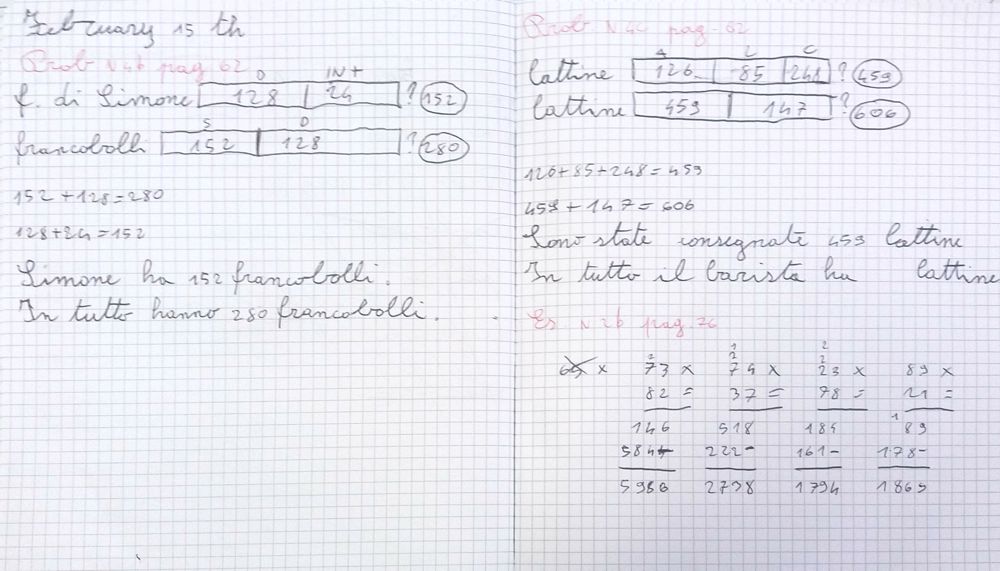 February 15 th
Prob N4b pag 62
D INT
f. di Simone 128 24 ? 152
S D
francobolli 152 128 ? 280
152 + 128 = 280
128 + 24 = 152
Simone ha 152 francobolli.
In tutto hanno 280 francobolli.
Prob. N4c pag. 62
A L C
lattine 126 85 248 ? 459
lattine 459 147 ? 606
126 + 85 + 248 = 459
459 + 147 = 606
Sono state consegnate 459 lattine
In tutto il barista ha lattine
Es. N 2b pag. 76
1 2
2 2 2
x 73 x 74 x 23 x 89 x
82 = 37 = 78 = 21 =
1
146 518 184 89
584- 222- 161- 178-
5986 2738 1794 1869